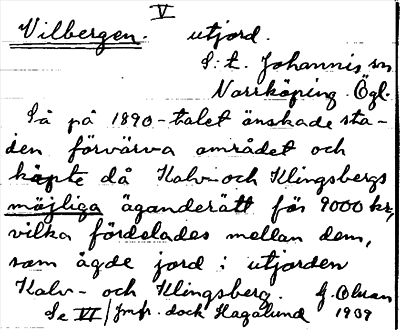 V
Vilbergen. utjord.
S:t. Johannis sn
Norrköping. Ögl.
Så på 1890-talet önskade sta-
den förvärva området och
köpte då Kalv- och Klingsbergs
möjliga äganderätt för 9000 kr,
vilka fördelades mellan dem,
som ägde jord i utjorden
Kalv- och Klingsberg. G. Olsson
Se VI / Jmfr. dock Hagalund 1939